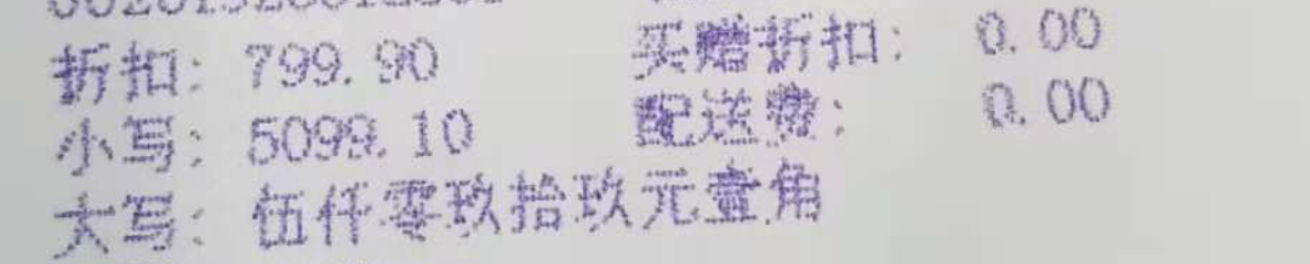 折扣: 799.90 买赠折扣: 0.00
小写: 5099.10 配送费: 0.00
大写: 伍仟零玖拾玖元壹角